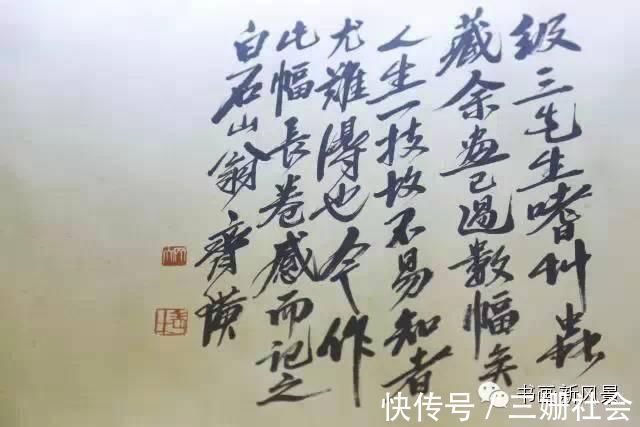 級三先生嗜艸蟲
藏余畫已過數幅矣
人生一技故不易知者
尤難得也今作
此幅長卷感而記之
白石山翁齊璜
书画新风景
快传号 / 三姗社会